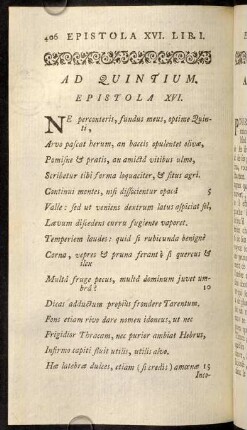 406 EPISTOLA XVI. LIB. I.
AD QUINTIUM.
EPISTOLA XVI.
NE perconteris, fundus meus, optime Quin-
ti,
Arvo pascat herum, an baccis opulentet olivæ,
Pomisne & pratis, an amictâ vitibus ulmo,
Scribetur tibi forma loquaciter, & situs agri.
Continui montes, nisi dissocientur opacâ 5
Valle: sed ut veniens dextrum latus aspiciat sol,
Lævum discedens curru fugiente vaporet.
Temperiem laudes: quid si rubicunda benignè
Corna, vepres & pruna ferant? si quercus &
ilex
Multâ fruge pecus, multâ dominum juvet um-
brâ? 10
Dicas adductum propiùs frondere Tarentum.
Fons etiam rivo dare nomen idoneus, ut nec
Frigidior Thracam, nec purior ambiat Hebrus,
Infirmo capiti fluit utilis, utilis alvo.
Hæ latebræ dulces, etiam (si credis) amœnæ 15
Inco-